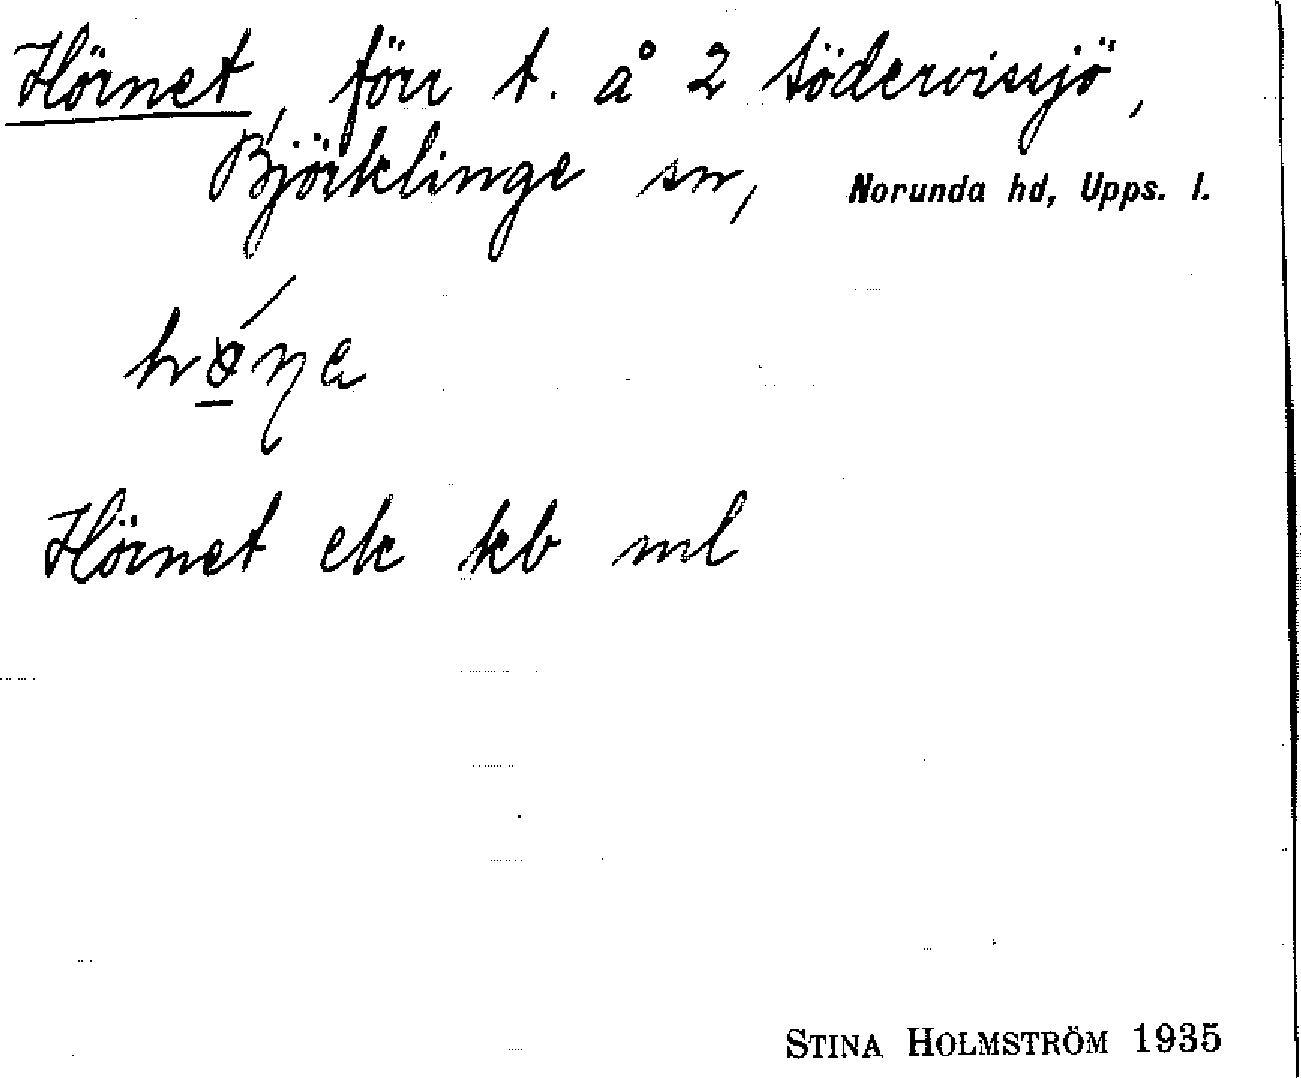 Hörnet, förr t. å 2 Södervissjö,
Björklinge sn, Norunda hd, Upps. l.
Hörnet ek kb ml
STINA HOLMSTRÖM 1935